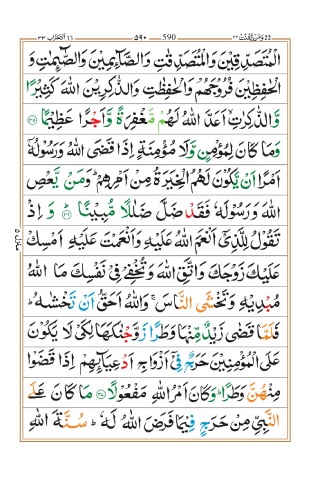 الاحزاب ٣٣ ٥٩٠ 590 ومن يقنت ٢٢
الْمُتَصَدِّقِيْنَ وَالْمُتَصَدِّقٰتِ وَالصَّآئِمِيْنَ وَالصّٰٓئِمٰتِ وَ
الْحٰفِظِيْنَ فُرُوْجَهُمْ وَالْحٰفِظٰتِ وَالذّٰكِرِيْنَ اللّٰهَ كَثِيْرًا
وَّالذّٰكِرٰتِ اَعَدَّ اللّٰهُ لَهُمْ مَّغْفِرَةً وَّاَجْرًا عَظِيْمًا ﴿۳۵﴾
وَمَا كَانَ لِمُؤْمِنٍ وَّلَا مُؤْمِنَةٍ اِذَا قَضَى اللّٰهُ وَرَسُوْلُهٗۤ
اَمْرًا اَنْ يَّكُوْنَ لَهُمُ الْخِيَرَةُ مِنْ اَمْرِهِمْ ؕ وَمَنْ يَّعْصِ
اللّٰهَ وَرَسُوْلَهٗ فَقَدْ ضَلَّ ضَلٰلًا مُّبِيْنًا ؕ ﴿۳۶﴾ وَ اِذْ
تَقُوْلُ لِلَّذِيْۤ اَنْعَمَ اللّٰهُ عَلَيْهِ وَاَنْعَمْتَ عَلَيْهِ اَمْسِكْ
عَلَيْكَ زَوْجَكَ وَاتَّقِ اللّٰهَ وَتُخْفِيْ فِيْ نَفْسِكَ مَا اللّٰهُ
مُبْدِيْهِ وَتَخْشَى النَّاسَ ۚ وَاللّٰهُ اَحَقُّ اَنْ تَخْشٰىهُ ؕ
فَلَمَّا قَضٰى زَيْدٌ مِّنْهَا وَطَرًا زَوَّجْنٰكَهَا لِكَيْ لَا يَكُوْنَ
عَلَى الْمُؤْمِنِيْنَ حَرَجٌ فِيْۤ اَزْوَاجِ اَدْعِيَآئِهِمْ اِذَا قَضَوْا
مِنْهُنَّ وَطَرًا ؕ وَكَانَ اَمْرُ اللّٰهِ مَفْعُوْلًا ﴿۳۷﴾ مَا كَانَ عَلَى
النَّبِيِّ مِنْ حَرَجٍ فِيْمَا فَرَضَ اللّٰهُ لَهٗ ؕ سُنَّةَ اللّٰهِ
منزل ٥